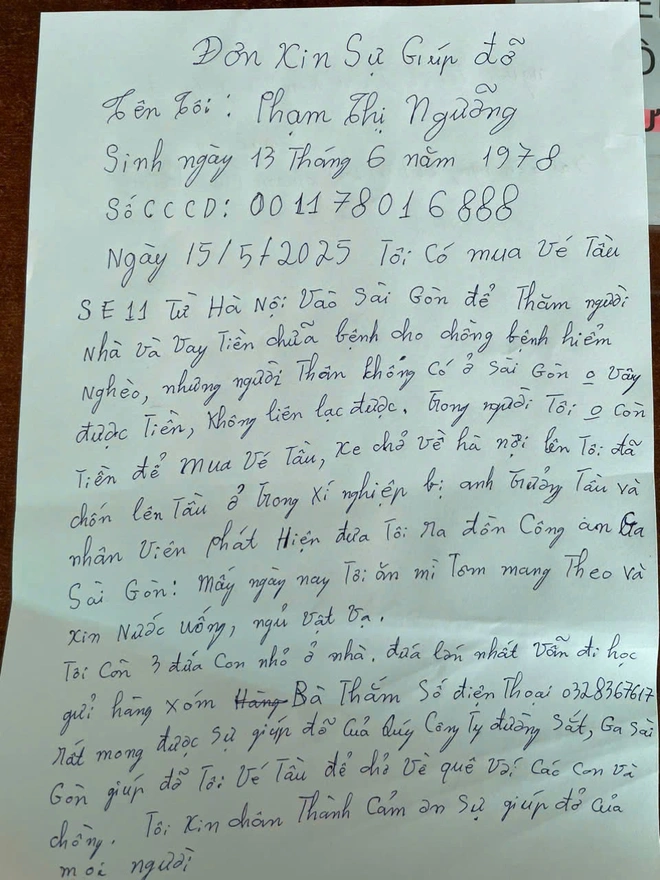 Đơn Xin Sự Giúp đỡ
Tên Tôi: Phạm Thị Ngưỡng
Sinh ngày 13 Tháng 6 năm 1978
Số CCCD: 001178016888
Ngày 15/5/2025 Tôi có mua vé Tầu
SE11 Từ Hà Nội Vào Sài Gòn để Thăm người
Nhà và Vay Tiền chữa bệnh cho chồng bệnh hiểm
Nghèo, nhưng người Thân không có ở Sài Gòn o Vây
được Tiền, Không liên lạc được. Trong người Tôi o còn
Tiền để mua Vé Tầu, xe chở về hà nội lên Tôi đã
chốn lên Tầu ở Trong xí nghiệp bị anh Trưởng Tầu và
nhân Viên phát Hiện đưa Tôi ra đồn Công an Ga
Sài Gòn: mấy ngày nay Tôi ăn mì Tôm mang Theo và
xin Nước uống, ngủ Vật Vạ.
Tôi Còn 3 đứa Con nhỏ ở nhà. đứa lớn nhất Vẫn đi học
gửi hàng xóm Hàng Bà Thắm Số điện Thoại 0328367617
rất mong được sự giúp đỡ của Quý Công Ty đường Sắt, Ga Sài
Gòn giúp đỡ Tôi Vé Tầu để chở Về quê Với Các Con và
chồng. Tôi Xin chân Thành Cảm ơn Sự giúp đở của
mọi người